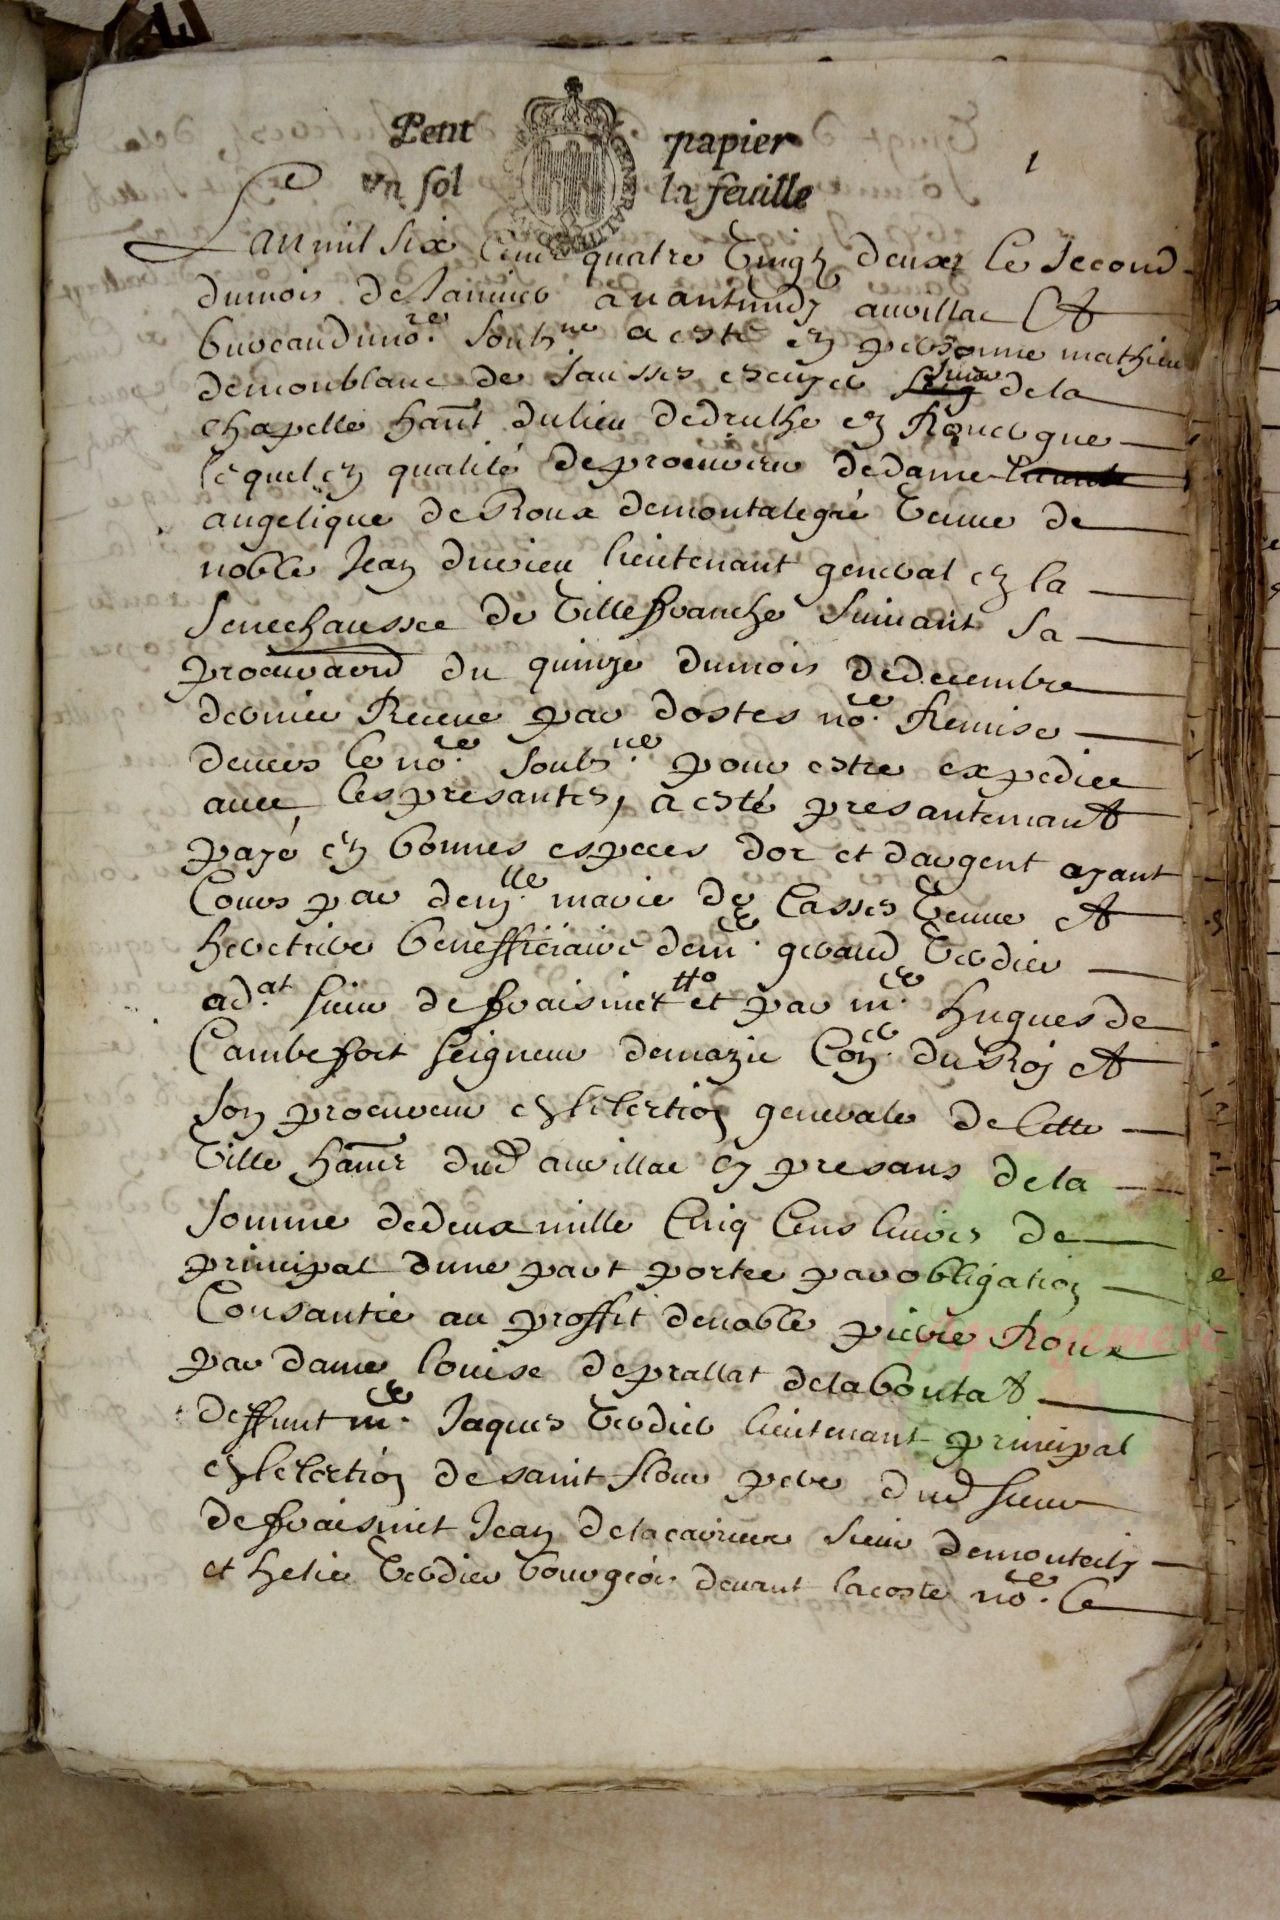 Petit papier
un sol la feuille
1
Lan mil six cens quatre vingtz deux et le second
du mois de Janvier avant midy a aurillac et
bureau du no.re soubs.ne a esté en personne mathieu
de monblanc de sausses escuyer sieur de la
chapelle hant du lieu de drulhe en Rouergue
lequel en qualité de procureur de dame
angelique de Roux de montalegré veuve de
noble Jean durieu lieutenant general en la
senechaussee de villefranche suivant sa
procura~on du quinze du mois de decembre
dernier Receue par dostes no.re Remise
devers le no.re soubs.ne pour estre expediee
avec les presantes, a esté presantemant
payé en bonnes especes dor et dargent ayant
cours par dem.lle marie de Casses veuve et
heretiere benefficiaire de m.e geraud verdier
ad.at sieur de fraissinet et par m.e hugues de
Cambefort seigneur de mazic Con.er du Roy et
son procureur en lelection generale de cette
ville hans dud aurillac en presans de la
somme de deux mille cinq cens livres de
principal dune part portee par obligation
consantie au proffit de noble pierre Roux
par dame louise de prallat de labouta et
deffunt m.e Jaques verdier lieutenant principal
en lelection de saint flour pere dud sieur
de fraissinet Jean de lacarriere sieur de monteily
et helie verdier bourgeois devant lacoste no.re le